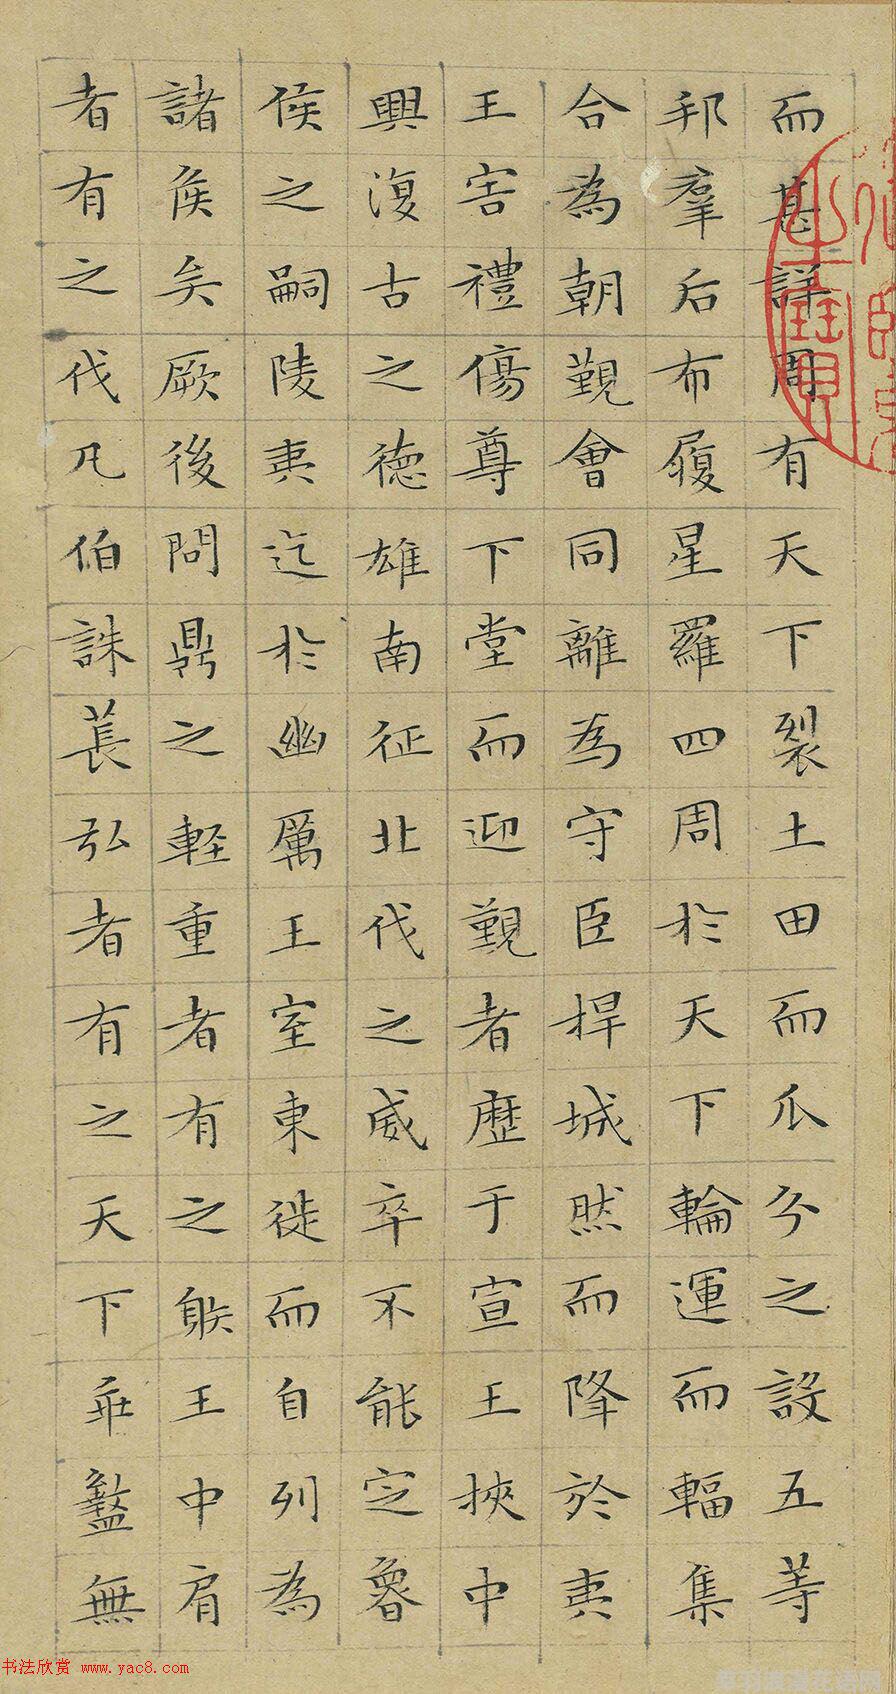 而甚詳周有天下裂土田而瓜分之設五等
邦羣后布履星羅四周於天下輪運而輻集
合為朝覲會同離為守臣捍城然而降於夷
王害禮傷尊下堂而迎覲者歷于宣王挾中
興復古之德雄南征北伐之威卒不能定魯
侯之嗣陵夷迄於幽厲王室東徙而自列為
諸侯矣厥後問鼎之軽重者有之䠶王中肩
者有之伐凡伯誅萇弘者有之天下乖盭無
书法欣赏 www.yac8.com